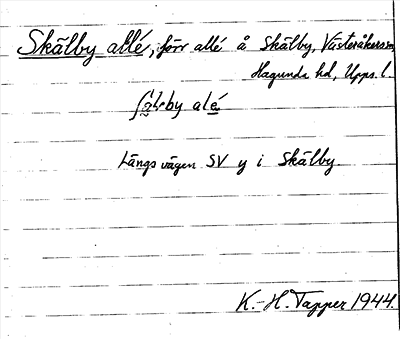 Skälby allé, förr allé å Skälby, Västeråkers sn,
Hagunda hd, Upps. l.
by alé
Längs vägen SV y i Skälby.
K.-H. Tapper 1944.